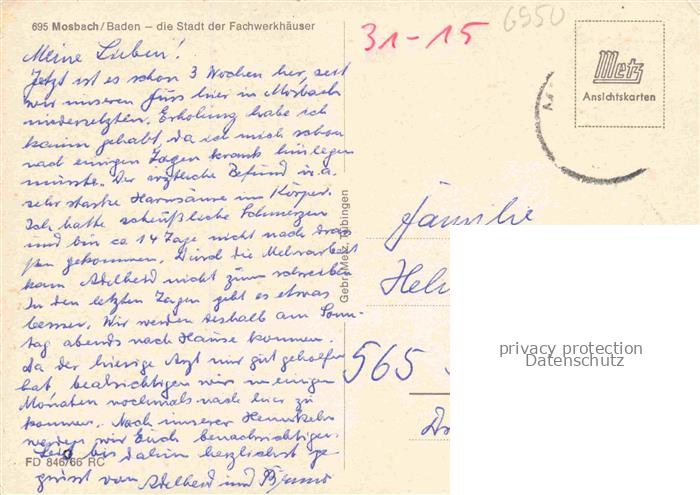 695 Mosbach/Baden – die Stadt der Fachwerkhäuser
31-15
6950
Metz
Ansichtskarten
Meine Lieben!
Jetzt ist es schon 3 Wochen her, seit
wir unseren Fuss hier in Mosbach
niedersetzten. Erholung habe ich
kaum gehabt, da ich mich schon
nach einigen Tagen krank hinlegen
müsste. Der ärztliche Befund u.a.
sehr starke Harnsäure im Körper.
Ich hatte scheußliche Schmerzen
und bin ca 14 Tage nicht nach drau-
ßen gekommen. Durch die Mehrarbeit
kam Adelheid nicht zum schreiben
In den letzten Tagen geht es etwas
besser. Wir werden deshalb am Sonn-
tag abends nach Hause kommen.
Da der hiesige Arzt mir gut geholfen
hat beabsichtigen wir in einigen
Monaten nochmals nach hier zu
kommen. Nach unserer Heimkehr
werden wir Euch benachrichtigen.
Seid bis dahin herzlichst ge-
grüsst von Adelheid und Bruno
FD 846/66 RC
Gebr. Metz, Tübingen
Familie
Hel
565
privacy protection
Datenschutz